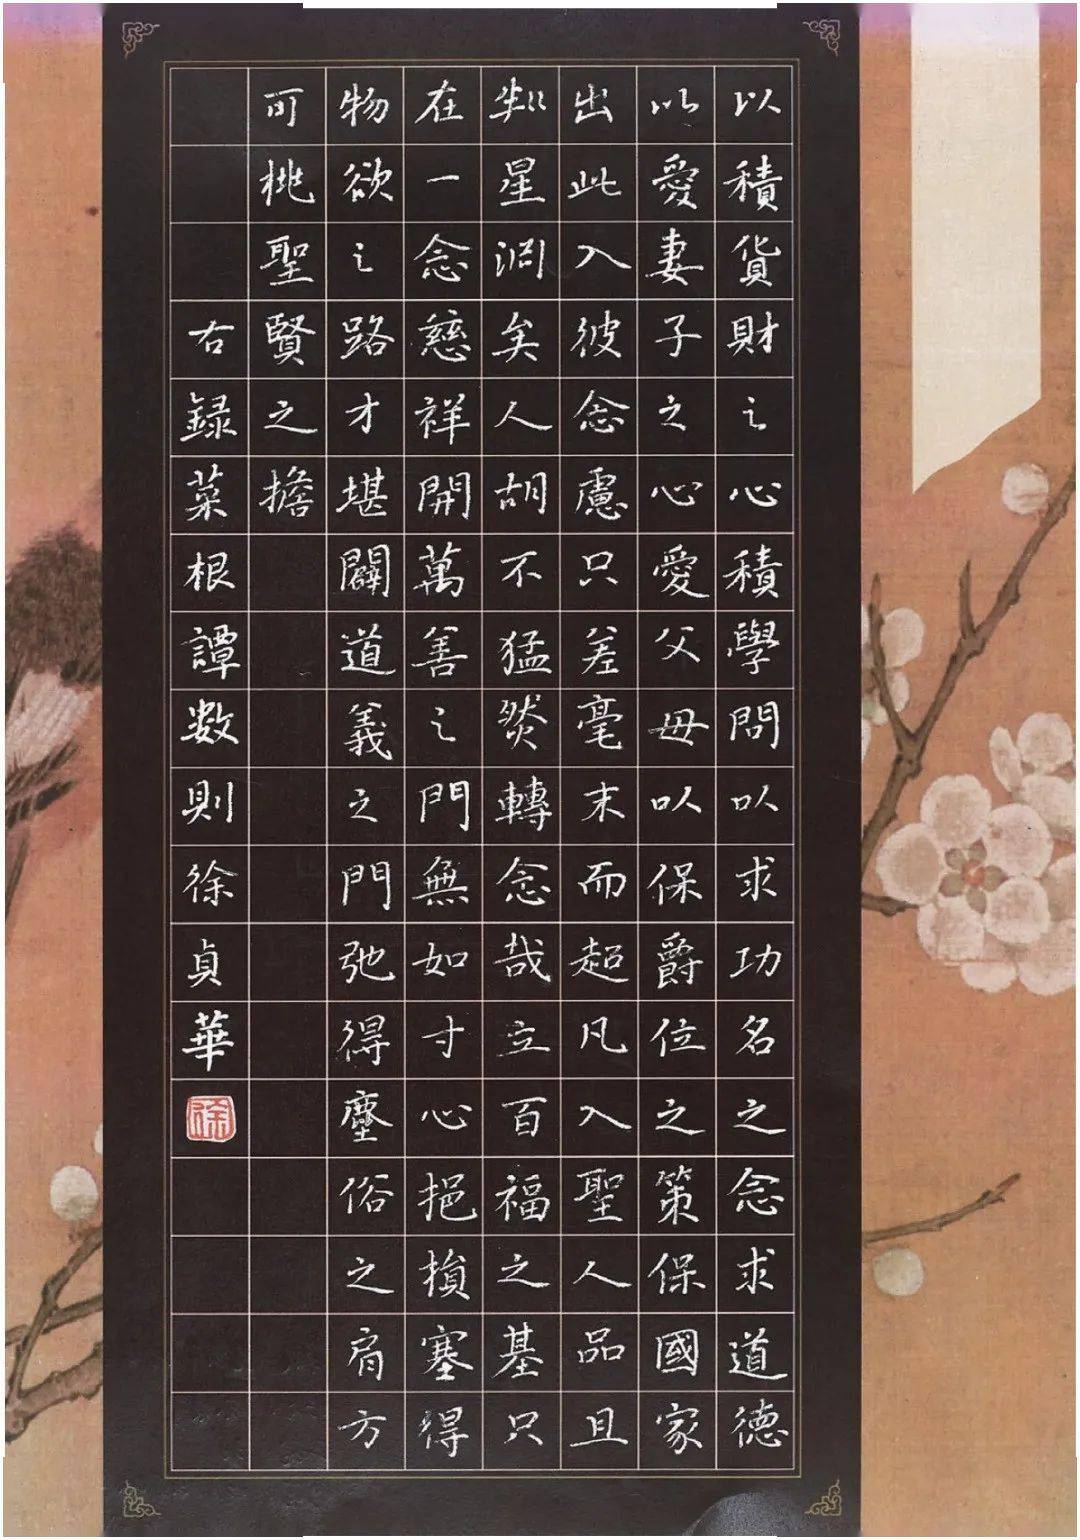 以積貨財之心積學問以求功名之念求道德
以愛妻子之心愛父母以保爵位之策保國家
出此入彼念慮只差毫末而超凡入聖人品且
判星淵矣人胡不猛然轉念哉立百福之基只
在一念慈祥開萬善之門無如寸心挹損塞得
物欲之路才堪闢道義之門弛得塵俗之肩方
可挑聖賢之擔
右録菜根譚数則徐貞華
徐